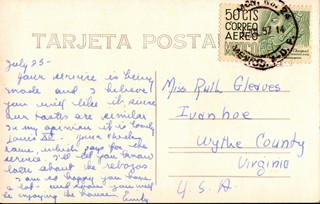 TARJETA POSTAL
50 CTS
CORREO
AEREO
MEXICO, D.F.
July 25-
Your service is being
made and I believe
you will like it since
our tastes are similar
In my opinion it is lovely
came, which pays for the
service. I'll let you know
later about the rebozos
I am so happy you have
a lot - and know you will
be enjoying the house. Emily
Miss Ruth Gleaves
Ivanhoe
Wythe County
Virginia
U.S.A.